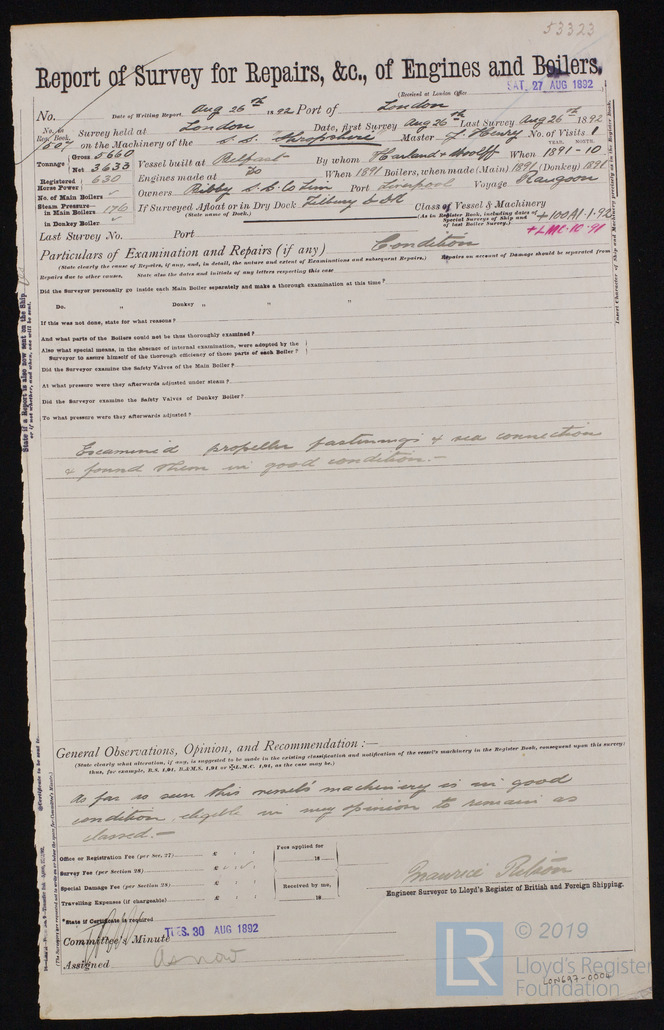 53323
Report of Survey for Repairs, &c., of Engines and Boilers.
(Received at London Office SAT. 27 AUG 1892
No. Date of Writing Report Aug 26th 1892 Port of London
No. in Reg. Book. Survey held at London Date, first Survey Aug 26th Last Survey Aug 26th 1892
507 on the Machinery of the S.S. Shropshire Master J. Henry No. of Visits 1
Tonnage Gross 5660 Net 3633 Vessel built at Belfast By whom Harland & Wolff When 1891-10 YEAR. MONTH.
Registered Horse Power 630 Engines made at Do When 1891 Boilers, when made (Main) 1891 (Donkey) 1891
No. of Main Boilers Owners Bibby S.S. Co Lim Port Liverpool Voyage Rangoon
Steam Pressure in Main Boilers 176 If Surveyed Afloat or in Dry Dock Tilbury (State name of Dock.) Class of Vessel & Machinery
in Donkey Boiler (As in Register Book, including dates of Special Surveys of Ship and of last Boiler Survey.) +100A1-1-92
+LMC-10-91
Last Survey No. Port
Particulars of Examination and Repairs (if any) Condition
(State clearly the cause of Repairs, if any, and, in detail, the nature and extent of Examinations and subsequent Repairs.) Repairs on account of Damage should be separated from
Repairs due to other causes, State also the dates and initials of any letters respecting this case
Did the Surveyor personally go inside each Main Boiler separately and make a thorough examination at this time?
Do. „ Donkey „ „ „
If this was not done, state for what reasons?
And what parts of the Boilers could not be thus thoroughly examined?
Also what special means, in the absence of internal examination, were adopted by the
Surveyor to assure himself of the thorough efficiency of those parts of each Boiler?
Did the Surveyor examine the Safety Valves of the Main Boiler?
At what pressure were they afterwards adjusted under steam?
Did the Surveyor examine the Safety Valves of Donkey Boiler?
To what pressure were they afterwards adjusted?
Examined propeller fastenings & sea connection
& found them in good condition.-
General Observations, Opinion, and Recommendation :—
(State clearly what alteration, if any, is suggested to be made in the existing classification and notification of the vessel's machinery in the Register Book, consequent upon this survey:
thus, for example, B.S. 1,94, B.&M.S. 1,94 or L.M.C. 1,94, as the case may be.)
As far as seen this vessel's machinery is in good
condition, eligible in my opinion to remain as
classed.-
Office or Registration Fee (per Sec. 27) £ Fees applied for
Survey Fee (per Section 28) £ 18
Special Damage Fee (per Section 28) £ Received by me,
Travelling Expenses (if chargeable) £ 18
Engineer Surveyor to Lloyd's Register of British and Foreign Shipping.
*State if Certificate is required
Committee's Minute TUES. 30 AUG 1892
Assigned As now
State if a Report is also now sent on the Ship
or if not whether, and when, one will be sent.
LR © 2019
Lloyd's Register
Foundation
LON697-0004